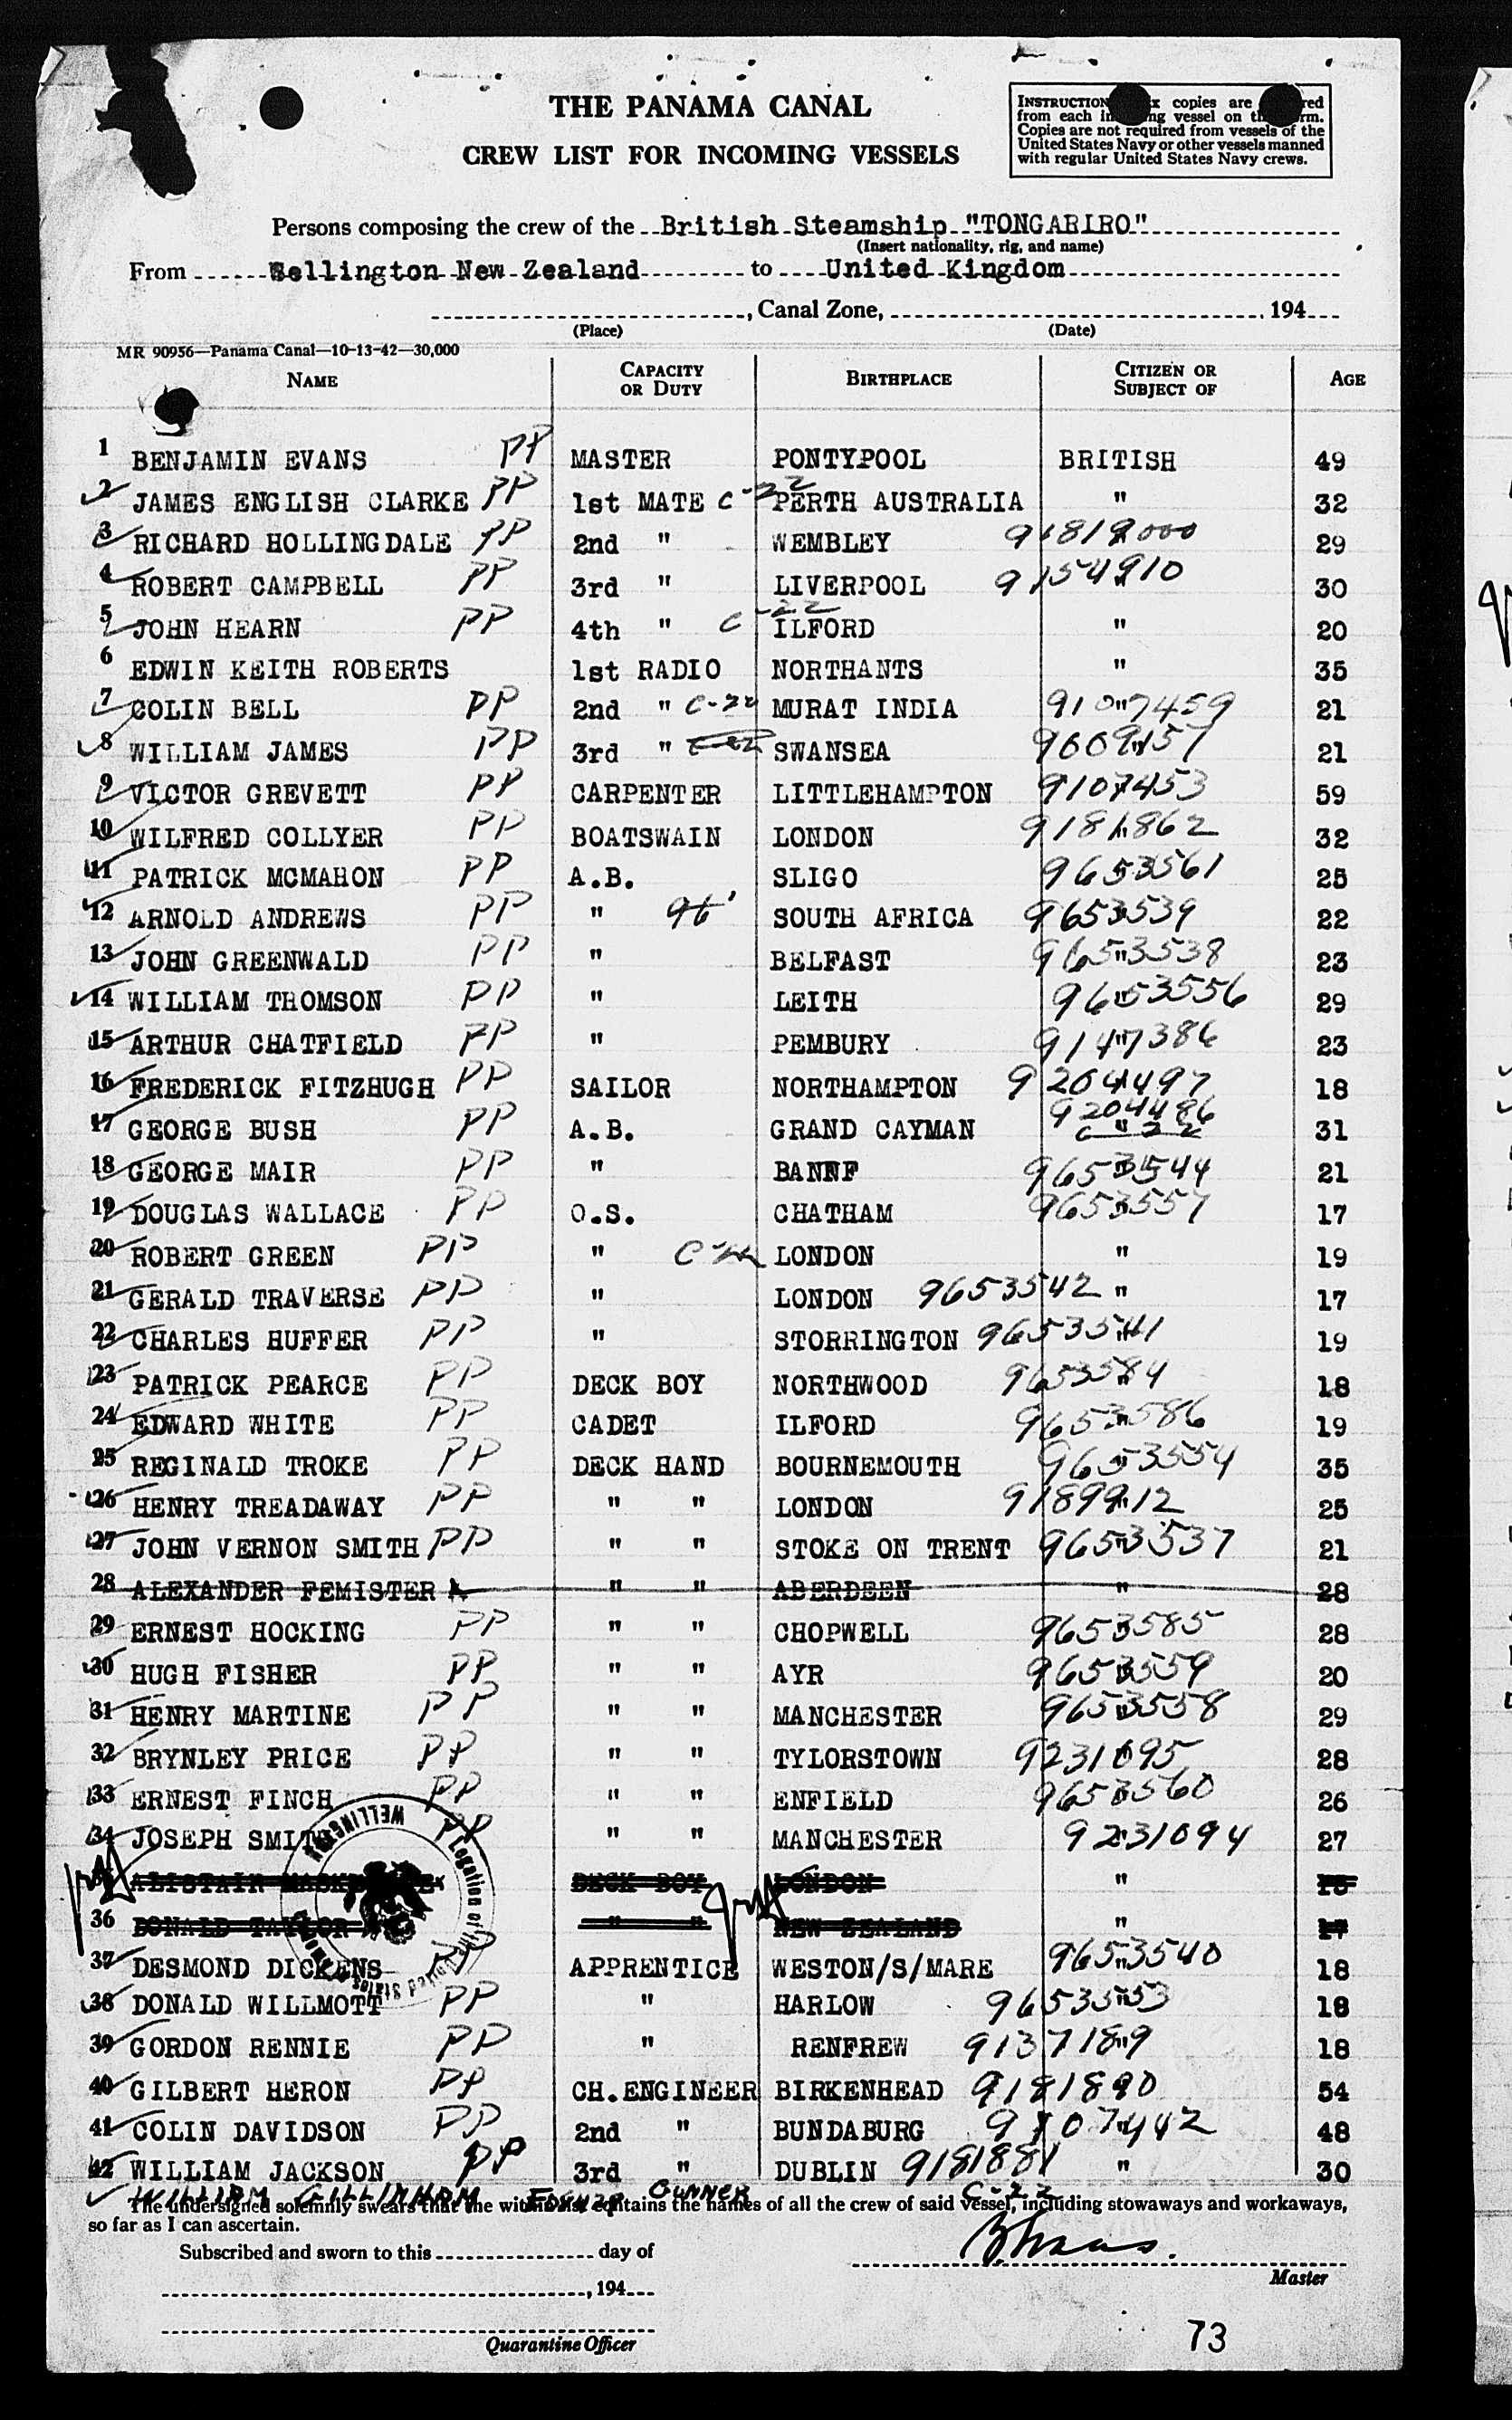 THE PANAMA CANAL
CREW LIST FOR INCOMING VESSELS
INSTRUCTION copies are
from each vessel on
Copies are not required from vessels of the
United States Navy or other vessels manned
with regular United States Navy crews.
Persons composing the crew of the British Steamship "TONGARIRO"
(Insert nationality, rig, and name)
From Wellington New Zealand to United Kingdom
, Canal Zone, , 194
(Place) (Date)
MR 90956—Panama Canal—10-13-42—30,000
NAME CAPACITY OR DUTY BIRTHPLACE CITIZEN OR SUBJECT OF AGE
1 BENJAMIN EVANS PP MASTER PONTYPOOL BRITISH 49
2 JAMES ENGLISH CLARKE PP 1st MATE C-22 PERTH AUSTRALIA " 32
3 RICHARD HOLLINGDALE PP 2nd " WEMBLEY 29
4 ROBERT CAMPBELL PP 3rd " LIVERPOOL 9154910 30
5 JOHN HEARN PP 4th " C-22 ILFORD " 20
6 EDWIN KEITH ROBERTS 1st RADIO NORTHANTS " 35
7 COLIN BELL PP 2nd " C-22 MURAT INDIA 9107459 21
8 WILLIAM JAMES PP 3rd " SWANSEA 21
9 VICTOR GREVETT PP CARPENTER LITTLEHAMPTON 9107453 59
10 WILFRED COLLYER PP BOATSWAIN LONDON 9181862 32
11 PATRICK MCMAHON PP A.B. SLIGO 9653561 25
12 ARNOLD ANDREWS PP " SOUTH AFRICA 9653539 22
13 JOHN GREENWALD PP " BELFAST 9653538 23
14 WILLIAM THOMSON PP " LEITH 9653556 29
15 ARTHUR CHATFIELD PP " PEMBURY 9147386 23
16 FREDERICK FITZHUGH PP SAILOR NORTHAMPTON 9204497 18
17 GEORGE BUSH PP A.B. GRAND CAYMAN 9204486 C-22 " 31
18 GEORGE MAIR PP " BANFF 9653544 21
19 DOUGLAS WALLACE PP O.S. CHATHAM 9653557 17
20 ROBERT GREEN PP " C-22 LONDON " 19
21 GERALD TRAVERSE PP " LONDON 9653542 " 17
22 CHARLES HUFFER PP " STORRINGTON 9653541 19
23 PATRICK PEARCE PP DECK BOY NORTHWOOD 9653584 18
24 EDWARD WHITE PP CADET ILFORD 9653586 19
25 REGINALD TROKE PP DECK HAND BOURNEMOUTH 9653554 35
26 HENRY TREADAWAY PP " " LONDON 9189912 25
27 JOHN VERNON SMITH PP " " STOKE ON TRENT 9653537 21
28 ALEXANDER FEMISTER " " ABERDEEN " 28
29 ERNEST HOCKING PP " " CHOPWELL 9653585 28
30 HUGH FISHER PP " " AYR 9653559 20
31 HENRY MARTINE PP " " MANCHESTER 9653558 29
32 BRYNLEY PRICE PP " " TYLORSTOWN 9231095 28
33 ERNEST FINCH PP " " ENFIELD 9653560 26
34 JOSEPH SMITH PP " " MANCHESTER 9231094 27
ALISTAIR DECK BOY LONDON "
36 DONALD TAYLOR " " NEW ZEALAND " 17
37 DESMOND DICKENS PP APPRENTICE WESTON/S/MARE 9653540 18
38 DONALD WILLMOTT PP " HARLOW 9653553 18
39 GORDON RENNIE PP " RENFREW 9137189 18
40 GILBERT HERON PP CH.ENGINEER BIRKENHEAD 9181890 54
41 COLIN DAVIDSON PP 2nd " BUNDABURG 9107442 48
42 WILLIAM JACKSON PP 3rd " DUBLIN 9181881 " 30
WILLIAM GILLINGHAM GUNNER C-22
The undersigned solemnly swears that the within list contains the names of all the crew of said vessel, including stowaways and workaways,
so far as I can ascertain.
Subscribed and sworn to this day of
, 194
Master
Quarantine Officer
73